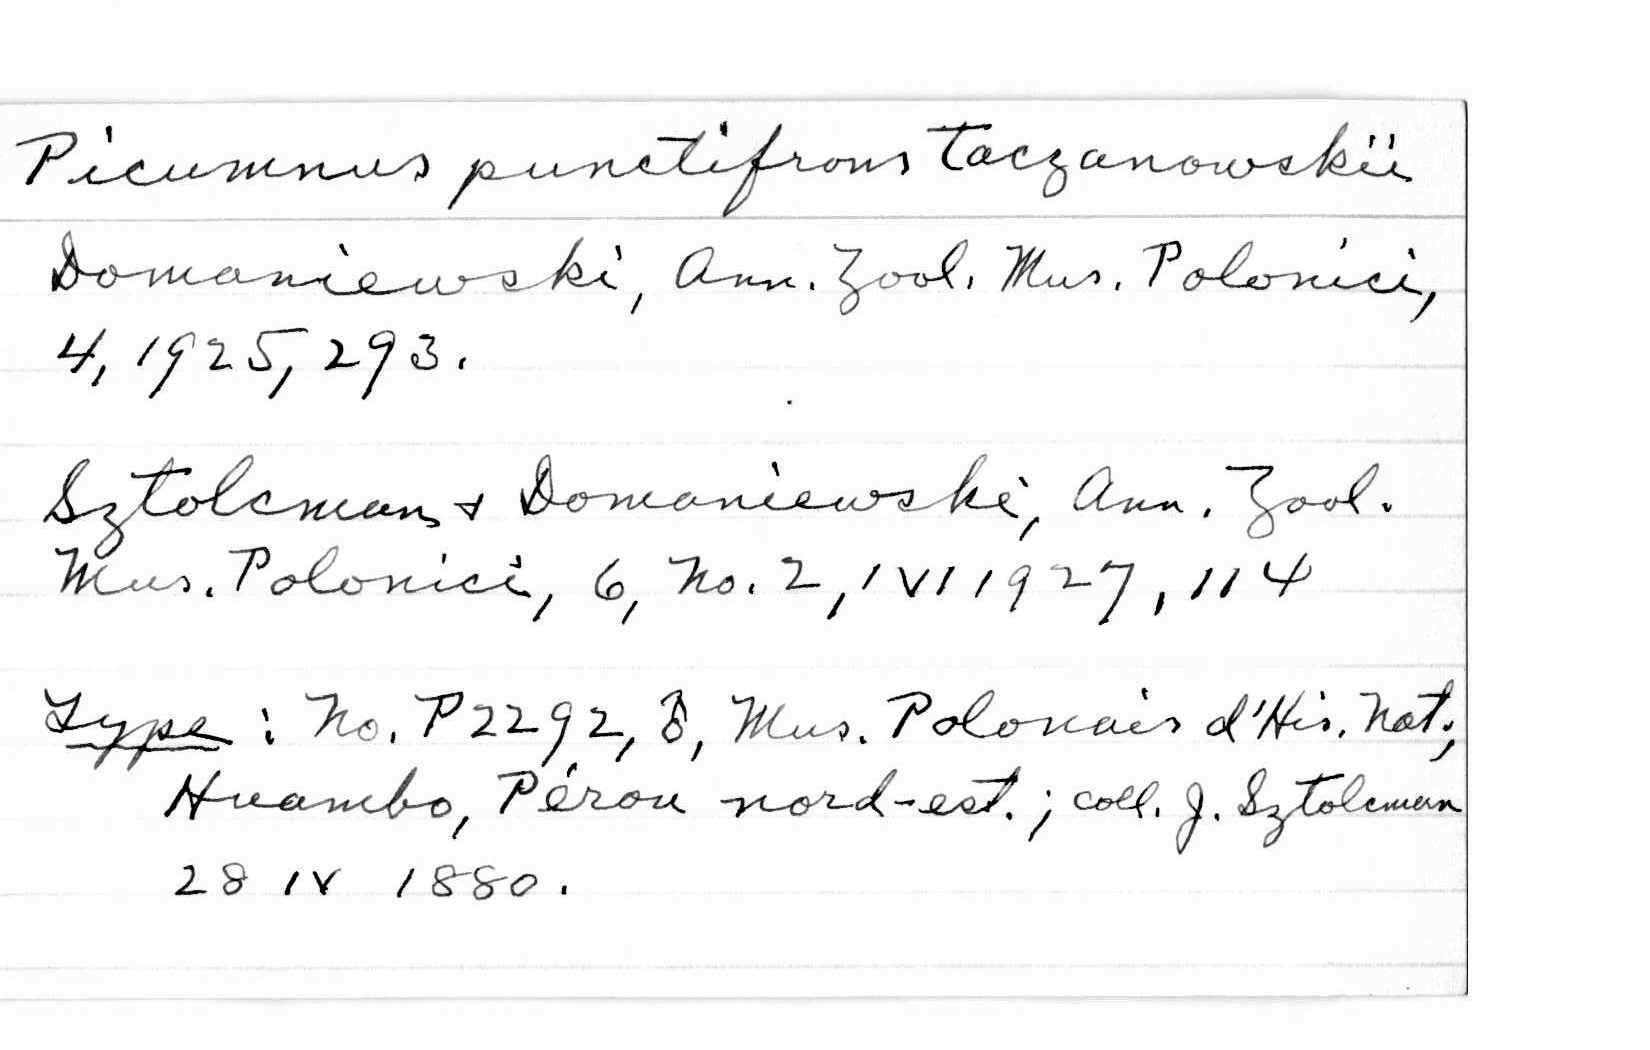 Picumnus punctifrons taczanowskii
Domaniewski, Ann. Zool. Mus. Polonici,
4, 1925, 293.
Sztolcman & Domaniewski, Ann. Zool.
Mus. Polonici, 6, No. 2, 1 VI 1927, 114
Type: No. P2292, ♂, Mus. Polonais d'His. Nat;
Huambo, Pérou nord-est.; coll. J. Sztolcman
28 IV 1880.